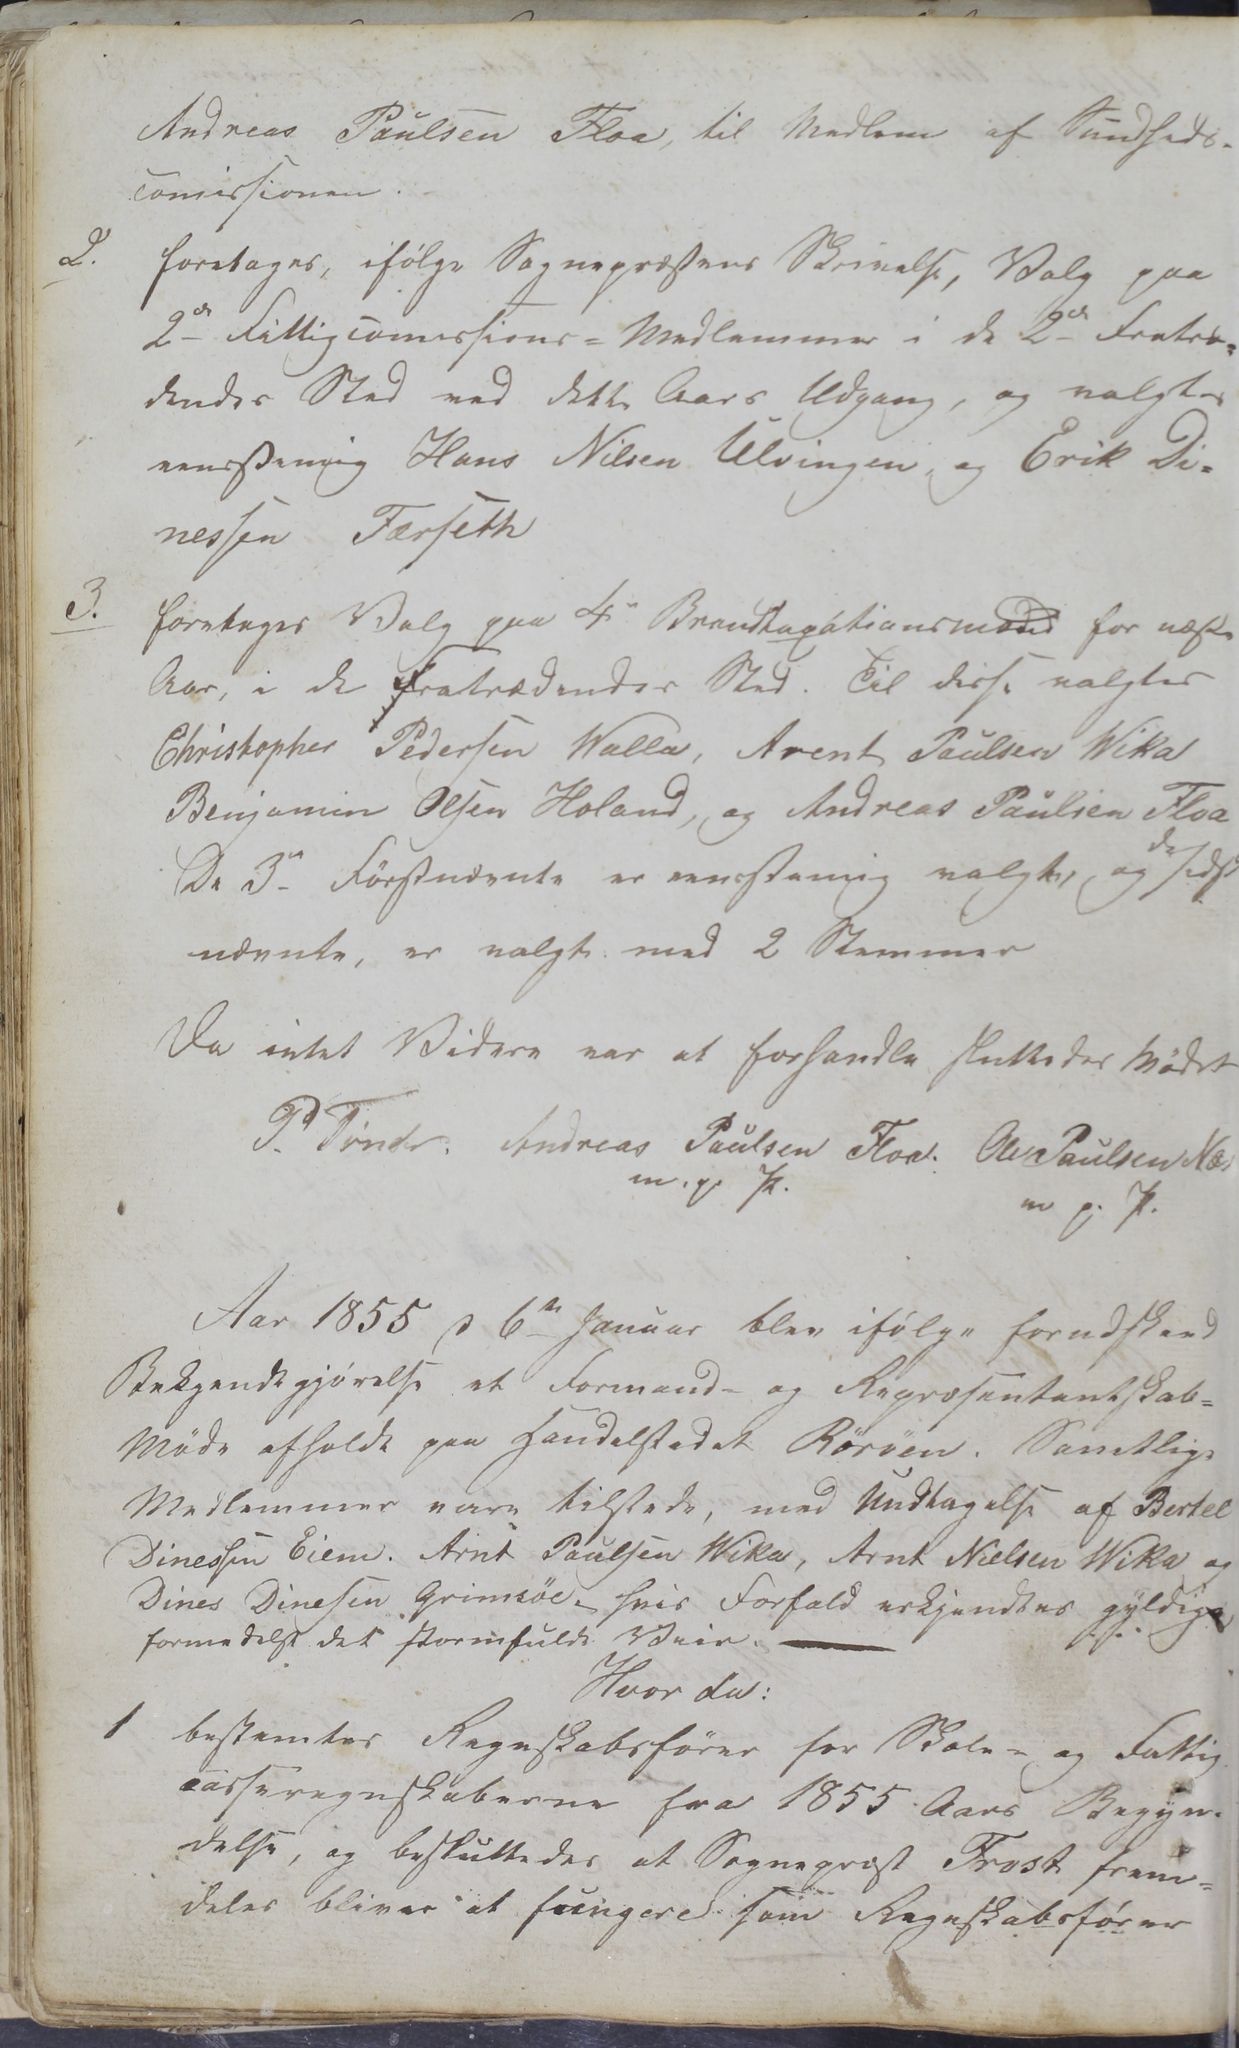 Andreas Paulsen Floa, til Medlem af Sundheds-
comissionen.
2. foretages, ifølge Sognepræstens Skrivelse, Valg paa
2de Fattigcomissions=Medlemmer i de 2de Fratræ=
dendes Sted ved dette Aars Udgang, og valgtes
eenstemig Hans Nilsen Ulvingen, og Erik Di=
nessen Færseth
3. foretages Valg paa 4re Brandtaxationsmænd for næste
Aar, i de fratrædendes Sted. Til disse valgtes
Christopher Pedersen Walla, Arent Paulsen Wika
Benjamin Olsen Holand, og Andreas Paulsen Floa
De 3de Förstnævnte er eenstemig valgte, og de sidst
nævnte, er valgt med 2 Stemmer
Da intet Videre var at forhandle sluttedes Mödet
P. Tönder. Andreas Paulsen Floa. Ole Paulsen Næs
m. p. P. m p. P.
Aar 1855 d 6te Januar blev ifølge forudskeed
Bekjendtgjørelse et Formand- og Repræsentantskab=
Möde afholdt paa Handelstedet Röröen. Samtlige
Medlemmer vare tilstede, med Undtagelse af Bertel
Dinessen Eiem. Arnt Paulsen Wika, Arnt Nielsen Wika og
Dines Dinesen Grimsöe, hvis Forfald erkjendtes gyldige
formedelst det stormfulde Veir.
Hvor da:
1 bestemtes Regnskabsfører for Skole- og Fattig
casseregnskaberne fra 1855 Aars Begyn-
delse, og besluttedes at Sognepræst Frost frem=
deles bliver at fungere som Regnskabsfører